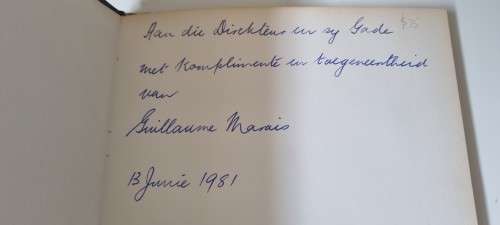 Aan die Direkteur en sy Gade
met komplimente en toegeneentheid
van
Guillaume Marais
13 Junie 1981